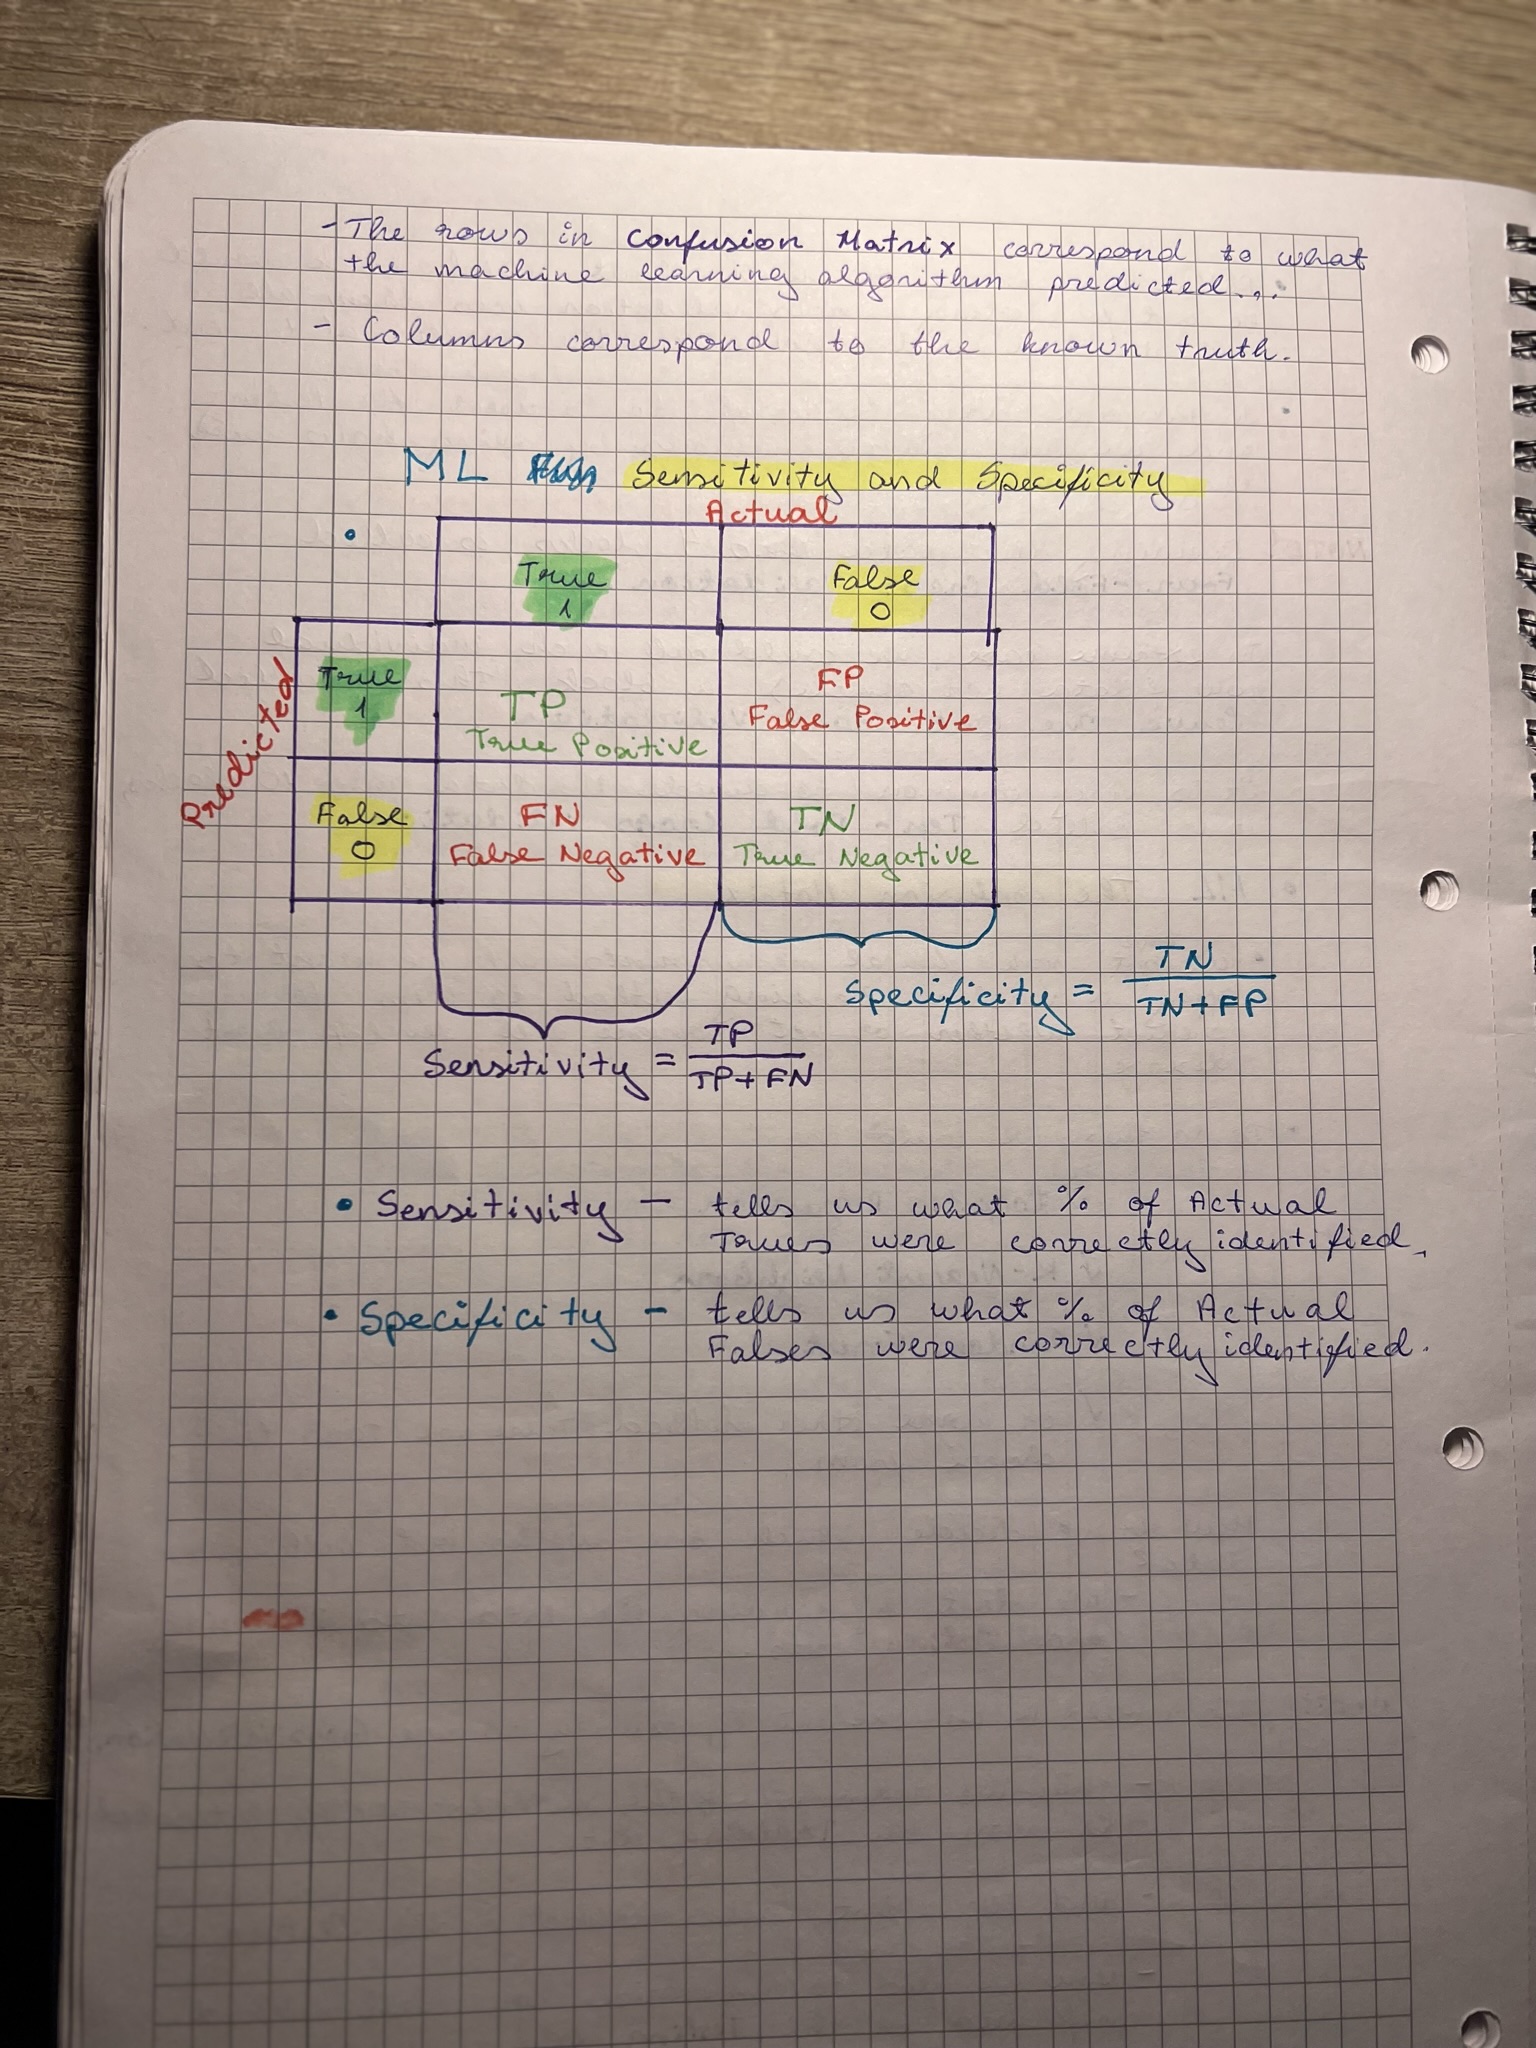 - The rows in Confusion Matrix correspond to what
the machine learning algorithm predicted...
- Columns correspond to the known truth.
ML Sensitivity and Specificity
Actual
True
1
False
0
Predicted
True
1
TP
True Positive
FP
False Positive
False
0
FN
False Negative
TN
True Negative
Specificity = TN
TN+FP
Sensitivity = TP
TP+FN
• Sensitivity - tells us what % of Actual
Trues were correctly identified.
• Specificity - tells us what % of Actual
Falses were correctly identified.